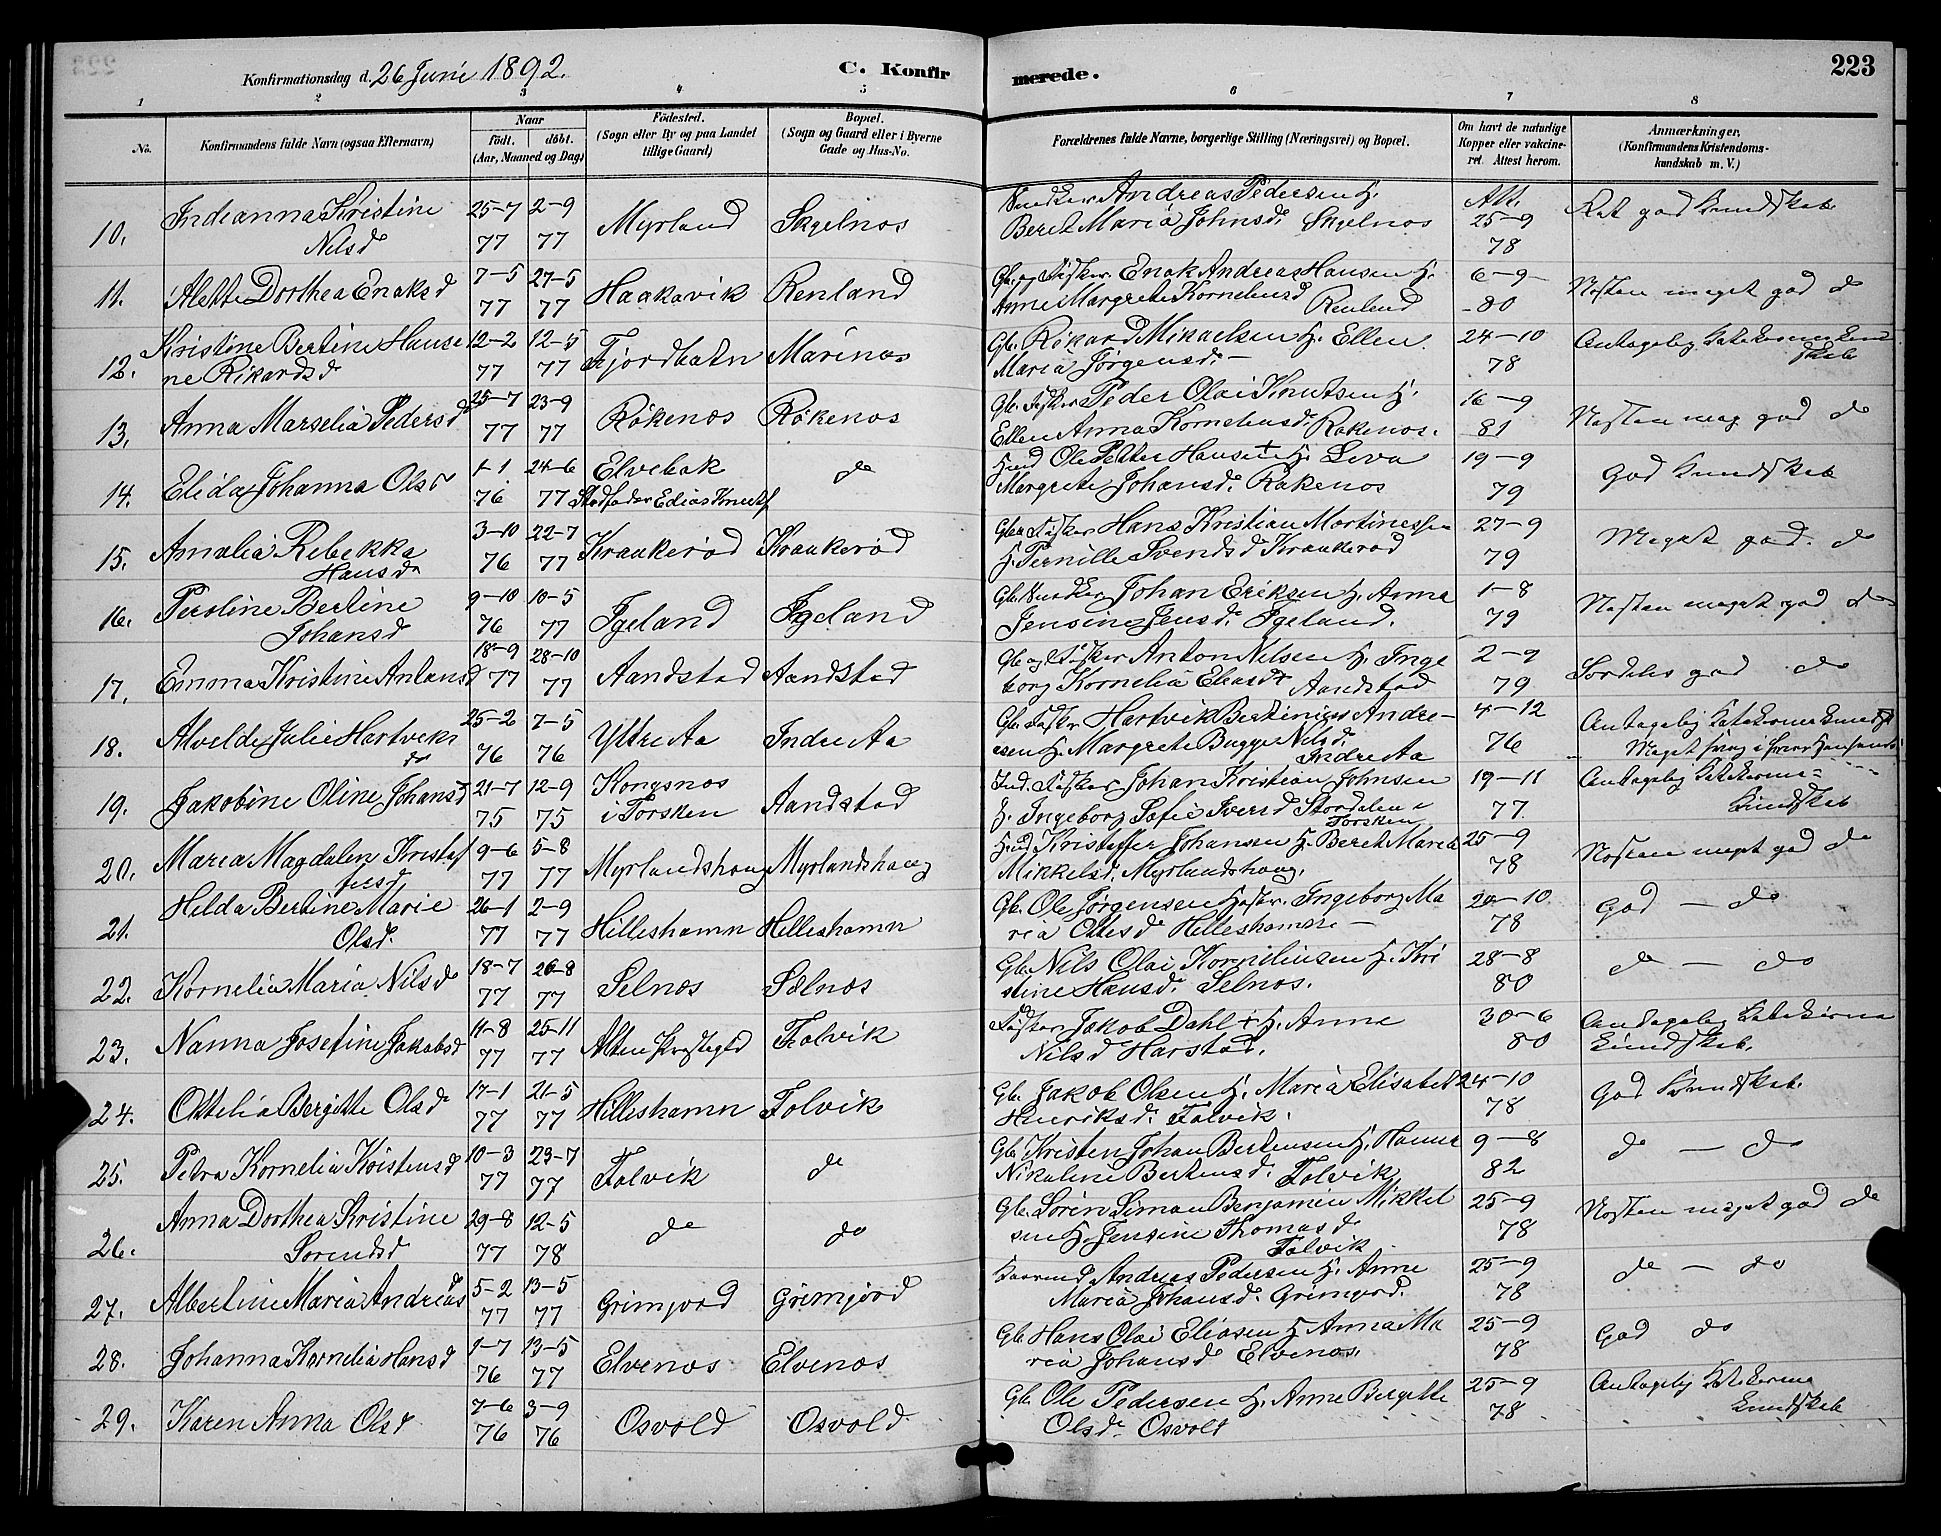 Konfirmationsdag d. 26 Juni 1892.
C. Konfirmerede.
223
1 2 3 4 5 6 7 8
No.
Konfirmandens fulde Navn (ogsaa Efternavn)
Naar
født. døbt.
(Aar, Maaned og Dag)
Fødested.
(Sogn eller By og paa Landet
tillige Gaard)
Bopæl.
(Sogn og Gaard eller i Byerne
Gade og Hus-No.
Forældrenes fulde Navne, borgerlige Stilling (Næringsvei) og Bopæl.
Om havt de naturlige
Kopper eller vakcine-
ret. Attest herom.
Anmærkninger,
(Konfirmandens Kristendoms-
kundskab m. V.)
10. Indianna Kristine Nilsd 25-7 77 2-9 77 Myrland Skjelnos Andreas Pedersen H.
Beret Maria Johnsd. Skjelnos Att. 25-9 78 Ret god Kundskab
11. Alette Dorthea Enoksd 7-5 77 27-5 77 Haakavik Renland Gb. og Fisker Enok Andreas Hansen H.
Anne Margrete Korneliusd Renland 6-9 80 Næsten meget god do
12. Kristine Bertine Hanse
ne Rikardsd 12-2 77 12-5 77 Fjordbotn Marinos Gb. Rikard Mikaelsen H. Ellen
Maria Jørgensd. 24-10 78 Antagelig
13. Anna Marselia Pedersd 25-7 77 23-9 77 Røkenos Røkenos Gb. Fisker Peder Olai Knutsen H.
Ellen Anna Korneliusd. Røkenos. 16-9 81 Næsten meg god do
14. Elida Johanna Olsd 1-1 76 24-6 77 Elvebak do Ole Petter Hansen + H.
Margrete Johansd. Røkenos 19-9 79 God Kundskab
15. Amalia Rebekka
Hansd 3-10 76 22-7 77 Kraakerød Kraakerød Gb. Fisker Hans Kristian Mortinessen
H. Pernille Svendsd Kraakerød 27-9 79 Meget god do
16. Peroline Bertine
Johansd 9-10 76 10-5 77 Igeland Igeland Gb. Johan Eriksen H. Anna
Jensine Jensd. Igeland. 1-8 79 Næsten meget god do
17. Emma Kristine Antonsd 18-9 77 28-10 77 Aandstad Aandstad Gb. og Fisker Anton Nilsen H. Inge
borg Kornelia Eliasd Aandstad 2-9 79 god do
18. Alvilde Julie Hartviks
d 25-2 76 7-5 76 Ytre Aa Indre Aa Gb. Fisker Hartvik Andre-
asen H. Margrete Bugge Nilsd. Indre Aa 4-12 76 Antagelig
19. Jakobine Oline Johansd 21-7 75 12-9 75 Kongsnos
i Torsken Aandstad Ind. Fisker Johan Kristian Johnsen
H. Ingeborg Sofie Iversd Stordalen
Torsken 19-11 77 Antagelig
Kundskab
20. Maria Magdalen Kristof
fersd 9-6 77 5-8 77 Myrlandshaug Myrlandshaug Kristoffer Johansen H. Beret Maria
Mikkelsd. Myrlandshaug. 25-9 78 Næsten meget god do
21. Hilda Bertine Marie
Olsd. 26-1 77 2-9 77 Hilleshamn Hilleshamn Gb. Ole Jørgensen Ingeborg Ma
ria Ottesd Hilleshamn 20-10 78 God — do
22. Kornelia Maria Nilsd 18-7 77 26-8 77 Selnos Sælnos Gb. Nils Olai Korneliusen H. Kri
stine Hansd. Selnos. 28-8 80 do — do
23. Nanna Josefine Jakobsd 11-8 77 25-11 77 Alten Folvik Fisker Jakob Dahl + H. Anna
Nilsd Harstad. 30-6 80 Antagelig
Kundskab.
24. Ottelia Bergitte Olsd 17-1 77 21-5 77 Hilleshamn Folvik Gb. Jakob Olsen H. Maria Elisabet
Henriksd. Folvik. 24-10 78 God Kundskab.
25. Petra Kornelia Kristensd 10-3 77 23-7 77 Folvik do Gb. Kristen Johan Bertensen H. Hanna
Nikoline Bertensd. Folvik 9-8 82 do — do
26. Anna Dorthea Kristine
Sørensd 29-8 77 12-5 78 do do Gb. Søren Simon Benjamin Mikkel
sen H. Jensine Thomasd
Folvik 25-9 78 Næsten meget god do
27. Albertine Maria Andreasd 5-2 77 13-5 77 Grimjord Grimjord Andreas Pedersen H. Anne
Maria Johansd. Grimjord. 25-9 78 do — do
28. Johanna Kornelia Hansd 1-7 76 13-5 77 Elvenos Elvenos Gb. Hans Olai Eliasen H. Anna Ma
ria Johansd Elvenos. 25-9 78 God do
29. Karen Anna Olsd 7-6 76 3-9 76 Osvold Osvold Gb. Ole Pedersen H. Anne Bergitte
Olsd. Osvold 25-9 78 Antagelig
Kundskab